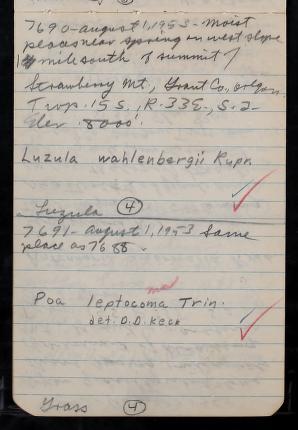 7690 - August 1, 1953 - Moist
places near spring on west slope
1/4 mile south of summit
Strawberry Mt., Grant Co., Oregon
Twp. 15 S., R. 33E., S. 2-
Elev. 8000'.
Luzula wahlenbergii Rupr.
Luzula 4
7691 - August 1, 1953 Same
place as 7688.
Poa leptocoma Trin.
det. D.D. Keck
Grass 4